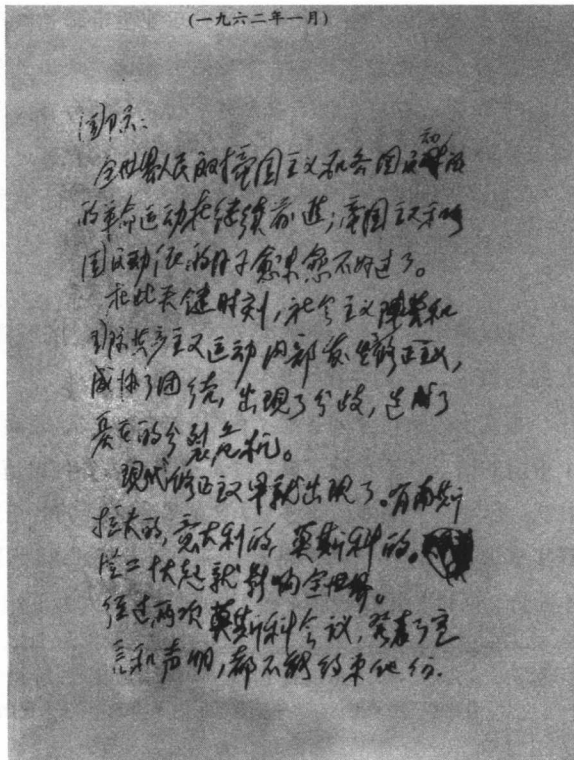 (一九六二年一月)
国际:
全世界人民反对帝国主义和各国反动派
的革命运动在继续前进;帝国主义和各
国反动派的日子愈来愈不好过了。
在此关键时刻,社会主义阵营和
国际共产主义运动内部发生修正主义,
威胁了团结,出现了分歧,造成了
的分裂危机。
现代修正主义早就出现了。有南斯
拉夫的,意大利的,莫斯科的。
二十大起就影响全世界。
经过两次莫斯科会议,发表了宣
言和声明,都不能约束他们。